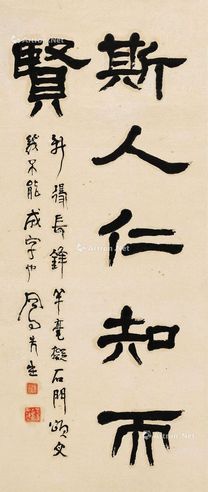 斯人仁知而
賢
新得長鋒羊毫擬石門頌文
幾不能成字也